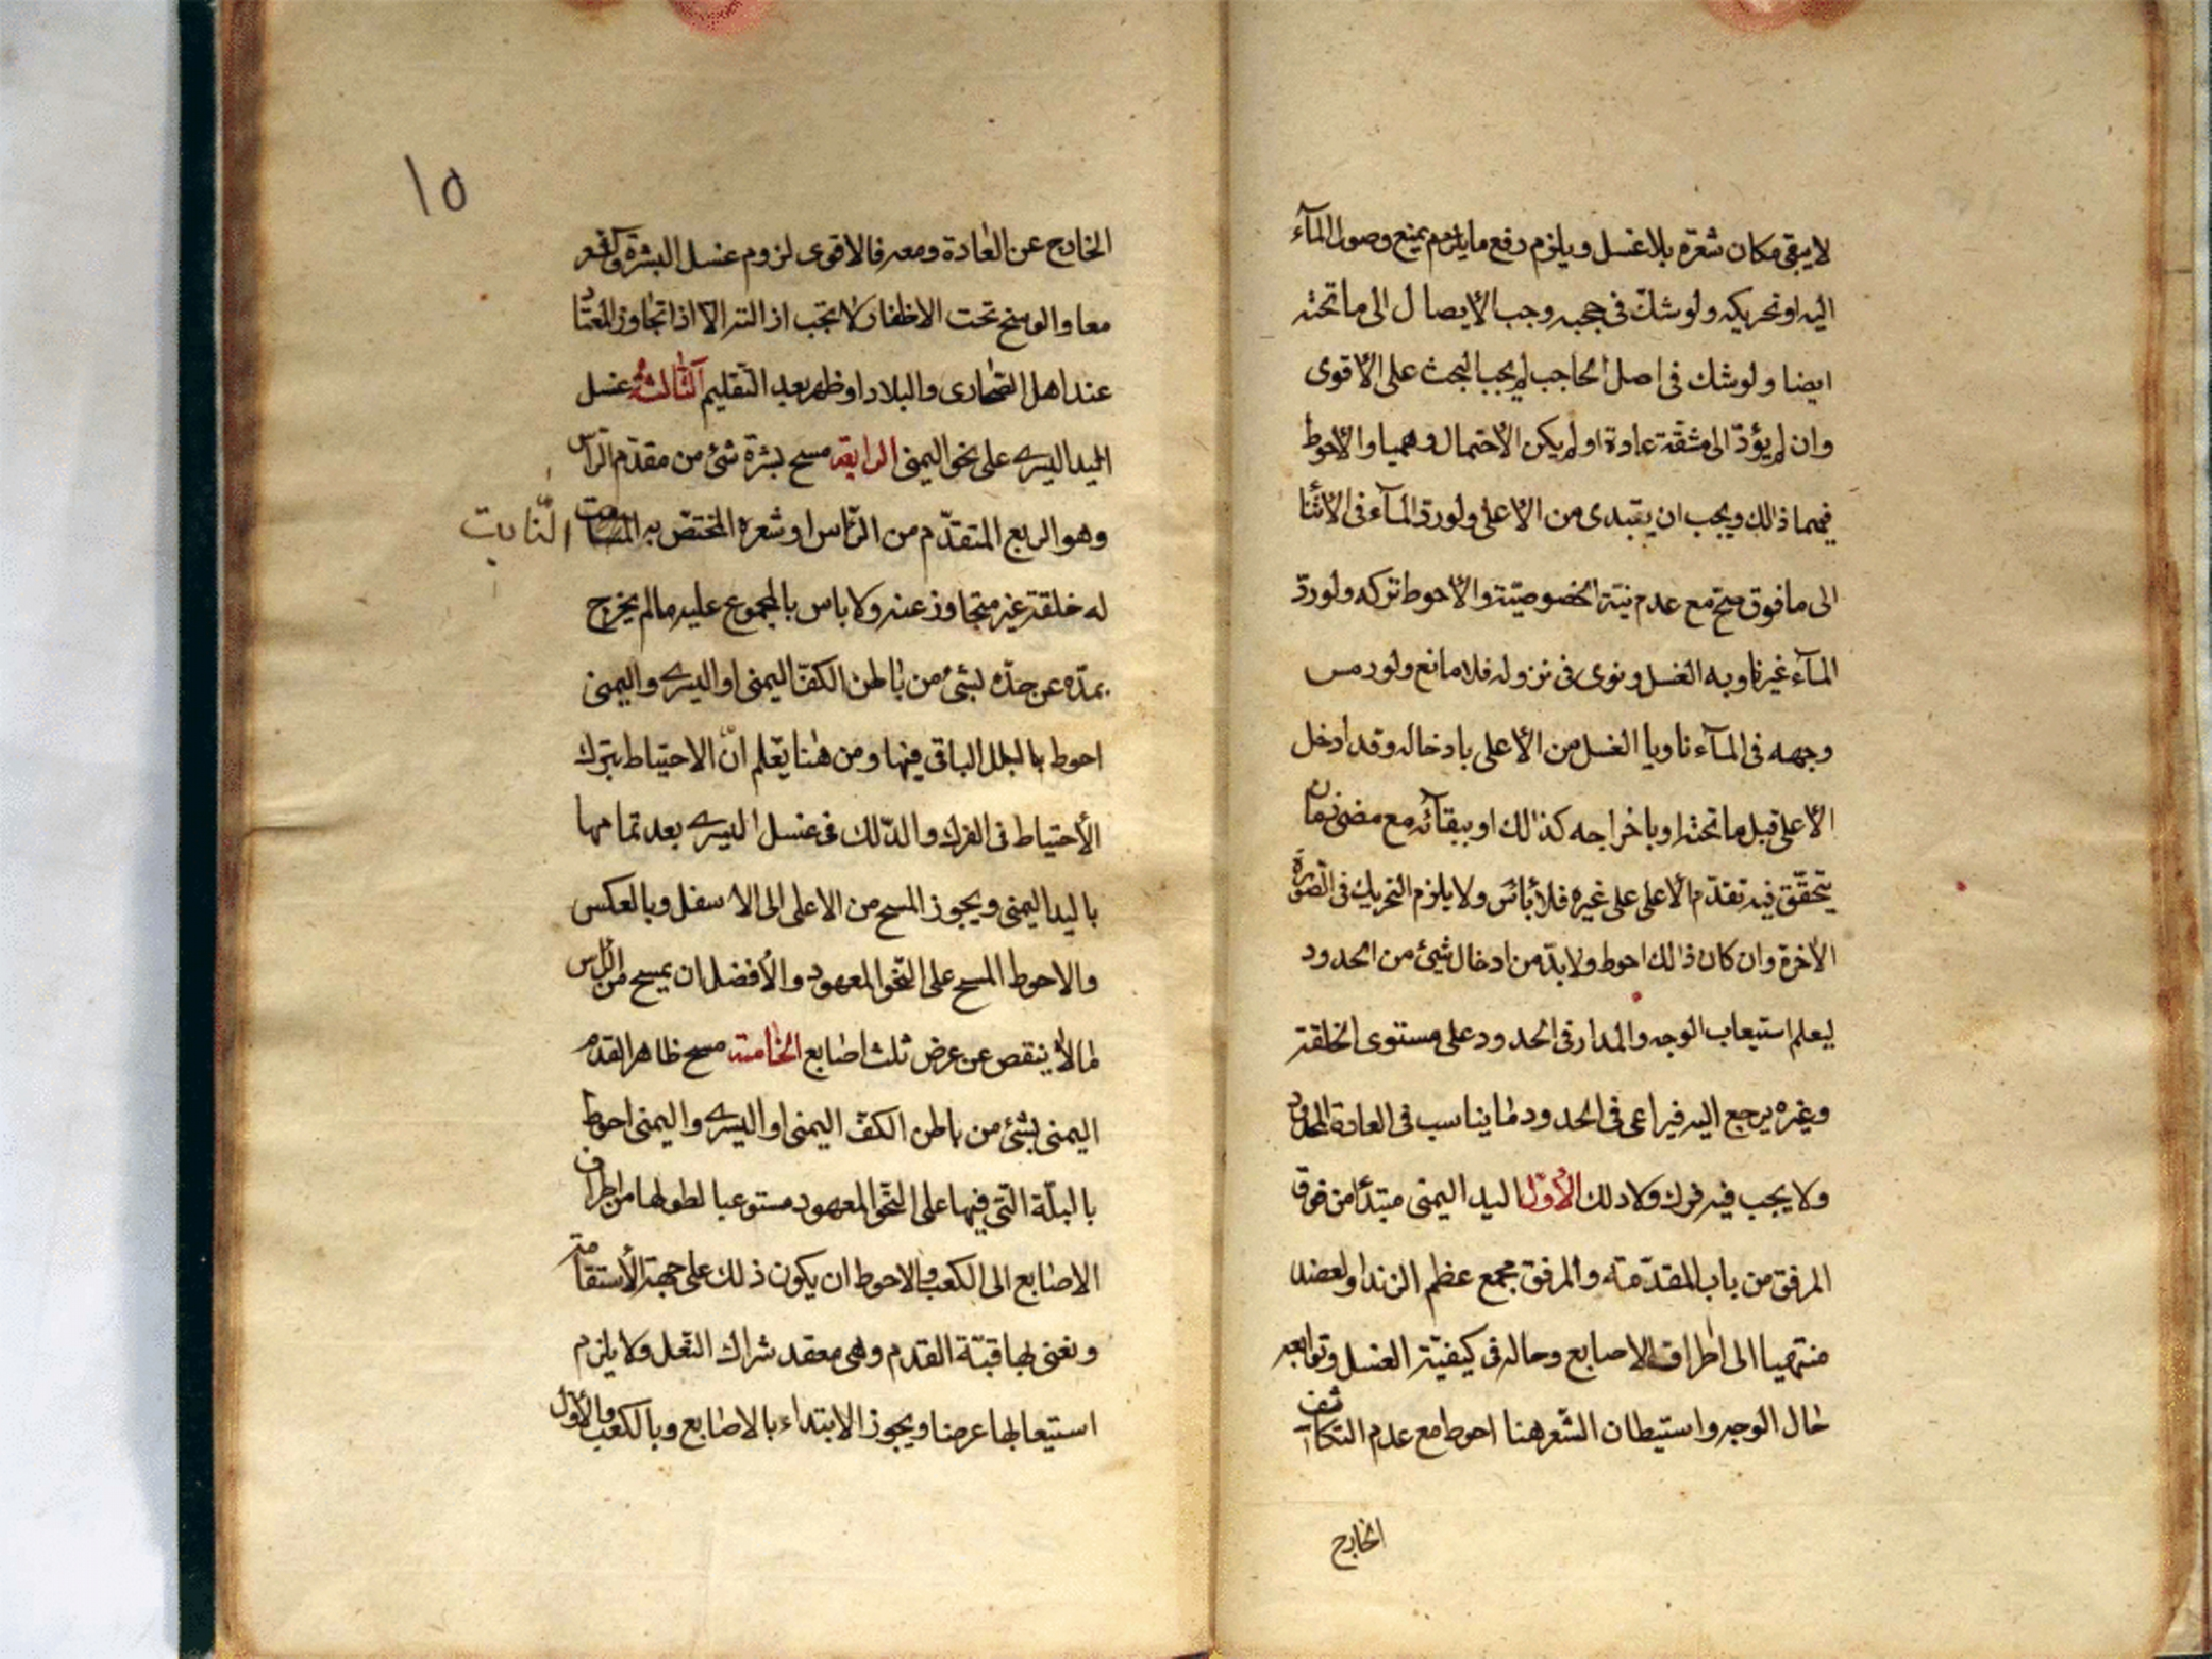 لايبقى مكان شعرة بلا غسل ويلزم رفع ما يلزم يمنع وصول المآء
اليه او تحريكه ولو شك فى حجبه وجب الايصال الى ما تحته
ايضا ولو شك فى اصل الحاجب لم يجب البحث على الاقوى
وان لم يؤدّ الى مشقّة عادة او لم يكن الاحتمال وهميا والاحوط
فيهما ذالك ويجب ان يبتدى من الاعلى ولو ردّ المآء فى الاثنا
الى ما فوق صحّ مع عدم نيّة الخصوصيّة والاحوط تركه ولو ردّ
المآء غير ناو به الغسل ونوى فى نزوله فلا مانع ولو رمس
وجهه فى المآء ناويا الغسل من الاعلى بادخاله وقد ادخل
الاعلى قبل ما تحته او باخراجه كذالك او ببقآئه مع مضى زمان
يتحقّق فيه تقدّم الاعلى على غيره فلا باس ولا يلزم التحريك فى الصّورة
الاخرة وان كان ذالك احوط ولا بدّ من ادخال شئ من الحدود
ليعلم استيعاب الوجه والمدار فى الحدود على مستوى الخلقة
وغيره يرجع اليه فيراعى فى الحدود ما يناسب فى العادة المحدود
ولا يجب فيه فرك ولا دلك الأول اليد اليمنى مبتدئا من فوق
المرفق من باب المقدّمة والمرفق مجمع عظم الزند او لعضد
منتهيا الى اطراف الاصابع وحاله فى كيفيّة الغسل وتوابعه
حال الوجه واستبطان الشّعر هنا احوط مع عدم التكاثف
الخارج
١٥
الخارج عن العادة ومعه فالاقوى لزوم غسل البشرة والشعر
معا والوسخ تحت الاظفار لا يجب ازالته الا اذا تجاوز المعتاد
عند اهل الصّحارى والبلاد او ظهر بعد التّقليم الثّالثة غسل
اليد اليسرى على نحو اليمنى الرابعة مسح بشرة شئ من مقدّم الرّاس
وهو الربع المتقدّم من الرّاس او شعره المختصّ به
النّابت
له خلقة غير متجاوز عنه ولا باس بالمجموع عليه ما لم يخرج
بمدّه عن حدّه بشئ من باطن الكفّ اليمنى او اليسرى واليمنى
احوط بالبلل الباقى فيها ومن هنا يعلم انّ الاحتياط بترك
الأحتياط فى الفرك والدّلك فى غسل اليسرى بعد تمامها
باليد اليمنى ويجوز المسح من الاعلى الى الاسفل وبالعكس
والاحوط المسح على النّحو المعهود والأفضل ان يمسح من الراس
ما لا ينقص عن عرض ثلث اصابع الخامسة مسح ظاهر القدم
اليمنى بشئ من باطن الكفّ اليمنى او اليسرى واليمنى احوط
بالبلّة الّتى فيها على النّحو المعهود مستوعبا لطولها من اطراف
الاصابع الى الكعب والاحوط ان يكون ذلك على جهة الأستقامة
ونعنى بها قبّة القدم وهى معقد شراك النّعل ولا يلزم
استيعابها عرضا ويجوز الابتداء بالاصابع وبالكعب والأول